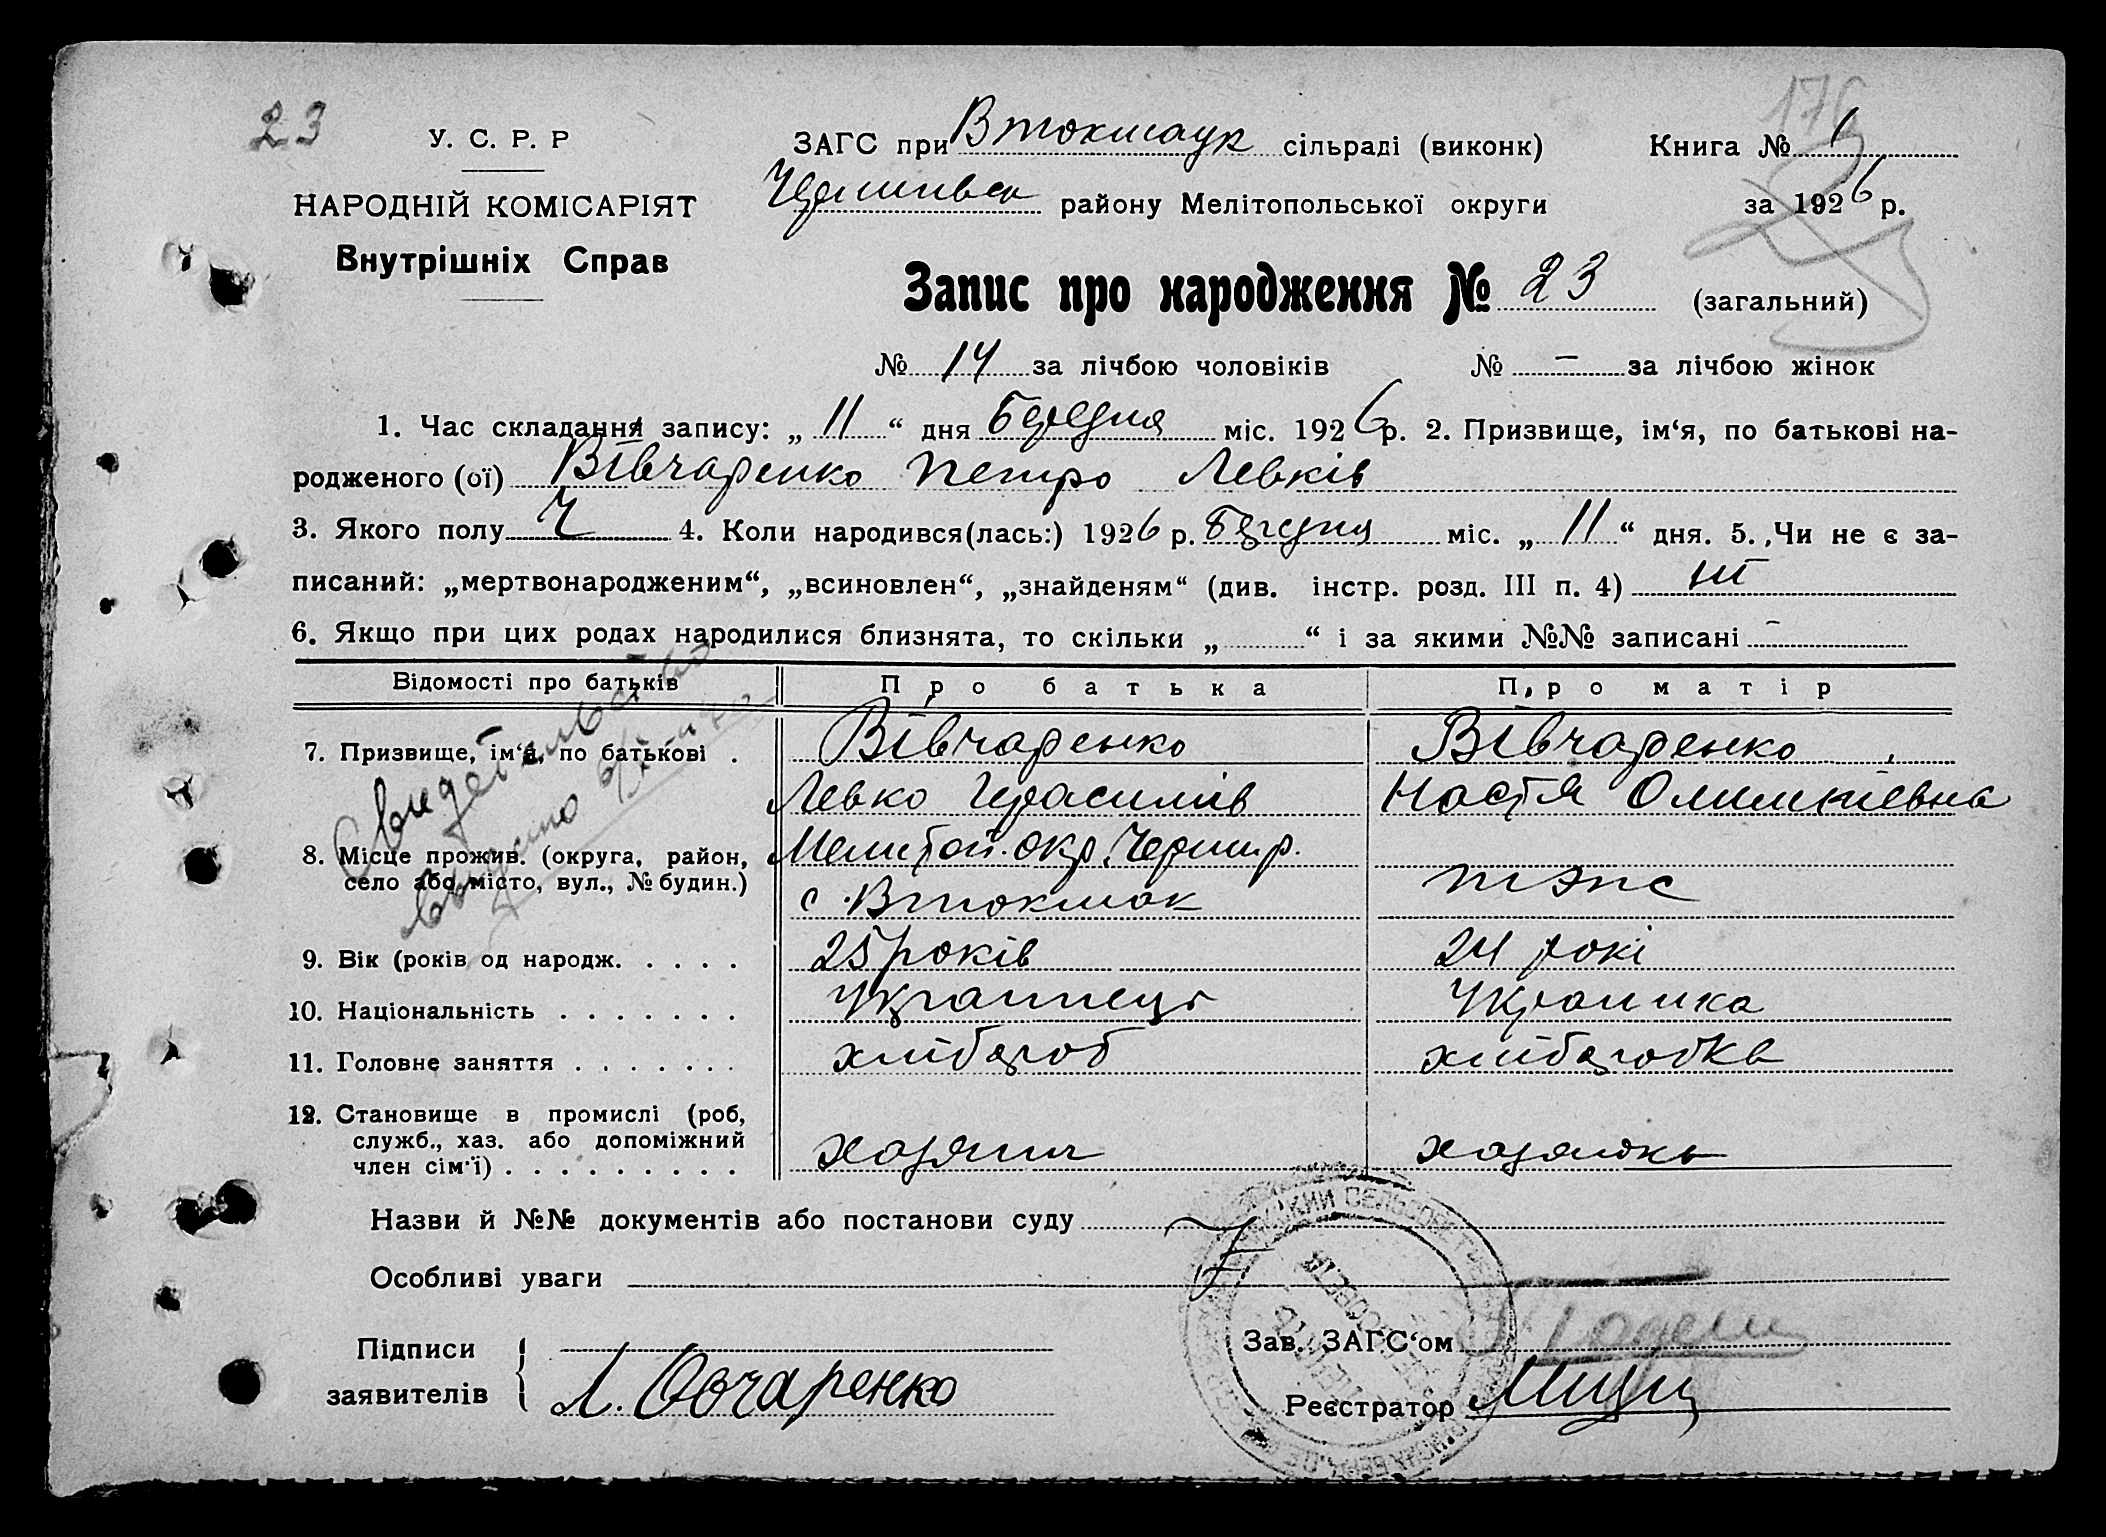 23
176
У. С. Р. Р
НАРОДНІЙ КОМІСАРІЯТ
Внутрішніх Справ
ЗАГС при Втокмаук сільраді (виконк) Книга № 1
району Мелітопольської округи за 1926 р.
Запис про народження № 23 (загальний)
№ 14 за лічбою чоловіків № — за лічбою жінок
1. Час складання запису: „ 11 “ дня Березня міс. 1926 р. 2. Призвище, ім‘я, по батькові на-
родженого (ої) Вівчаренко Петро Левків
3. Якого полу Ч 4. Коли народився(лась:) 1926 р. Березня міс. „ 11 “ дня. 5. Чи не є за-
писаний: „мертвонародженим“, „всиновлен“, „знайденям“ (див. інстр. розд. III п. 4) ні
6. Якщо при цих родах народилися близнята, то скільки „ “ і за якими №№ записані —
Відомості про батьків Про батька Про матір
7. Призвище, ім‘я, по батькові . Вівчаренко Вівчаренко
Левко Герасимів Настя
8. Місце прожив. (округа, район, Мелитоп. окр. Черниг р.
село або місто, вул., № будин.) с. Втокмак тэпс
9. Вік (років од народж. . . . . 25 років 24 рокі
10. Національність . . . . . . . Українець Українка
11. Головне заняття . . . . . . . хлібороб хлібороБка
12. Становище в промислі (роб,
служб., хаз. або допоміжний
член сім‘ї) . . . . . . . . . хазяин хазяюка
Свидетельство
выдано
Назви й №№ документів або постанови суду
Особливі уваги
Підписи
заявителів Л. Овчаренко
Зав. ЗАГС‘ом
Реєстратор